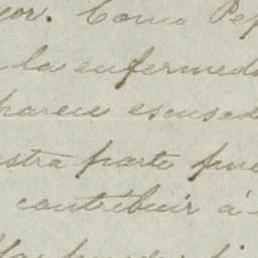 or. Como Pep
la enfermeda
parece escusad
stra parte pue
contribuir á